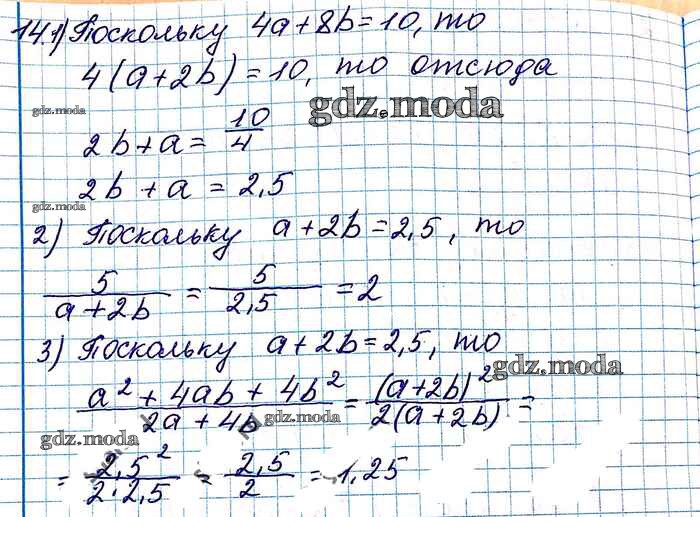 14.1) Поскольку 4a + 8b = 10, то
4(a + 2b) = 10, то отсюда
gdz.moda
gdz.moda
2b + a = 10/4
2b + a = 2,5
gdz.moda
2) Поскольку a + 2b = 2,5, то
5/(a + 2b) = 5/2,5 = 2
3) Поскольку a + 2b = 2,5, то
gdz.moda
(a² + 4ab + 4b²)/(2a + 4b) = (a + 2b)²/(2(a + 2b)) =
gdz.moda
gdz.moda
= 2,5²/(2·2,5) = 2,5/2 = 1,25